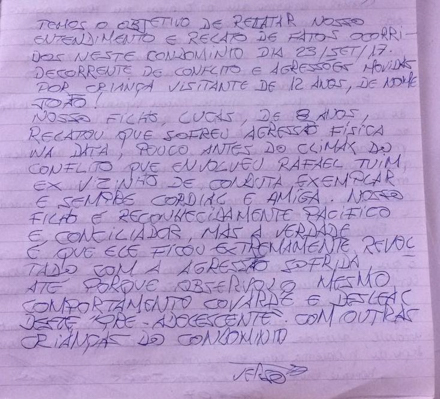 TEMOS O OBJETIVO DE RELATAR NOSSO
ENTENDIMENTO E RELATO DE FATOS OCORRI-
DOS NESTE CONDOMINIO DIA 23/SET/17.
DECORRENTE DE CONFLITO E AGRESSÕES MOVIDAS
POR CRIANÇA VISITANTE DE 12 ANOS, DE NOME
JOÃO.
NOSSO FILHO, LUCAS, DE 8 ANOS,
RELATOU QUE SOFREU AGRESSÃO FÍSICA
NA DATA, POUCO ANTES DO CLIMAX DO
CONFLITO QUE ENVOLVEU RAFAEL TUIM,
EX VIZINHO DE CONDUTA EXEMPLAR
E SEMPRE CORDIAL E AMIGA. NOSSO
FILHO E RECONHECIDAMENTE PACIFICO
E, CONCILIADOR, MAS A VERDADE
É QUE ELE FICOU EXTREMAMENTE REVOL-
TADO COM A AGRESSÃO SOFRIDA
ATE PORQUE OBSERVOU O MESMO
COMPORTAMENTO COVARDE E DESLEAL
DESTE PRE-ADOLESCENTE COM OUTRAS
CRIANÇAS DO CONDOMINIO
VERSO